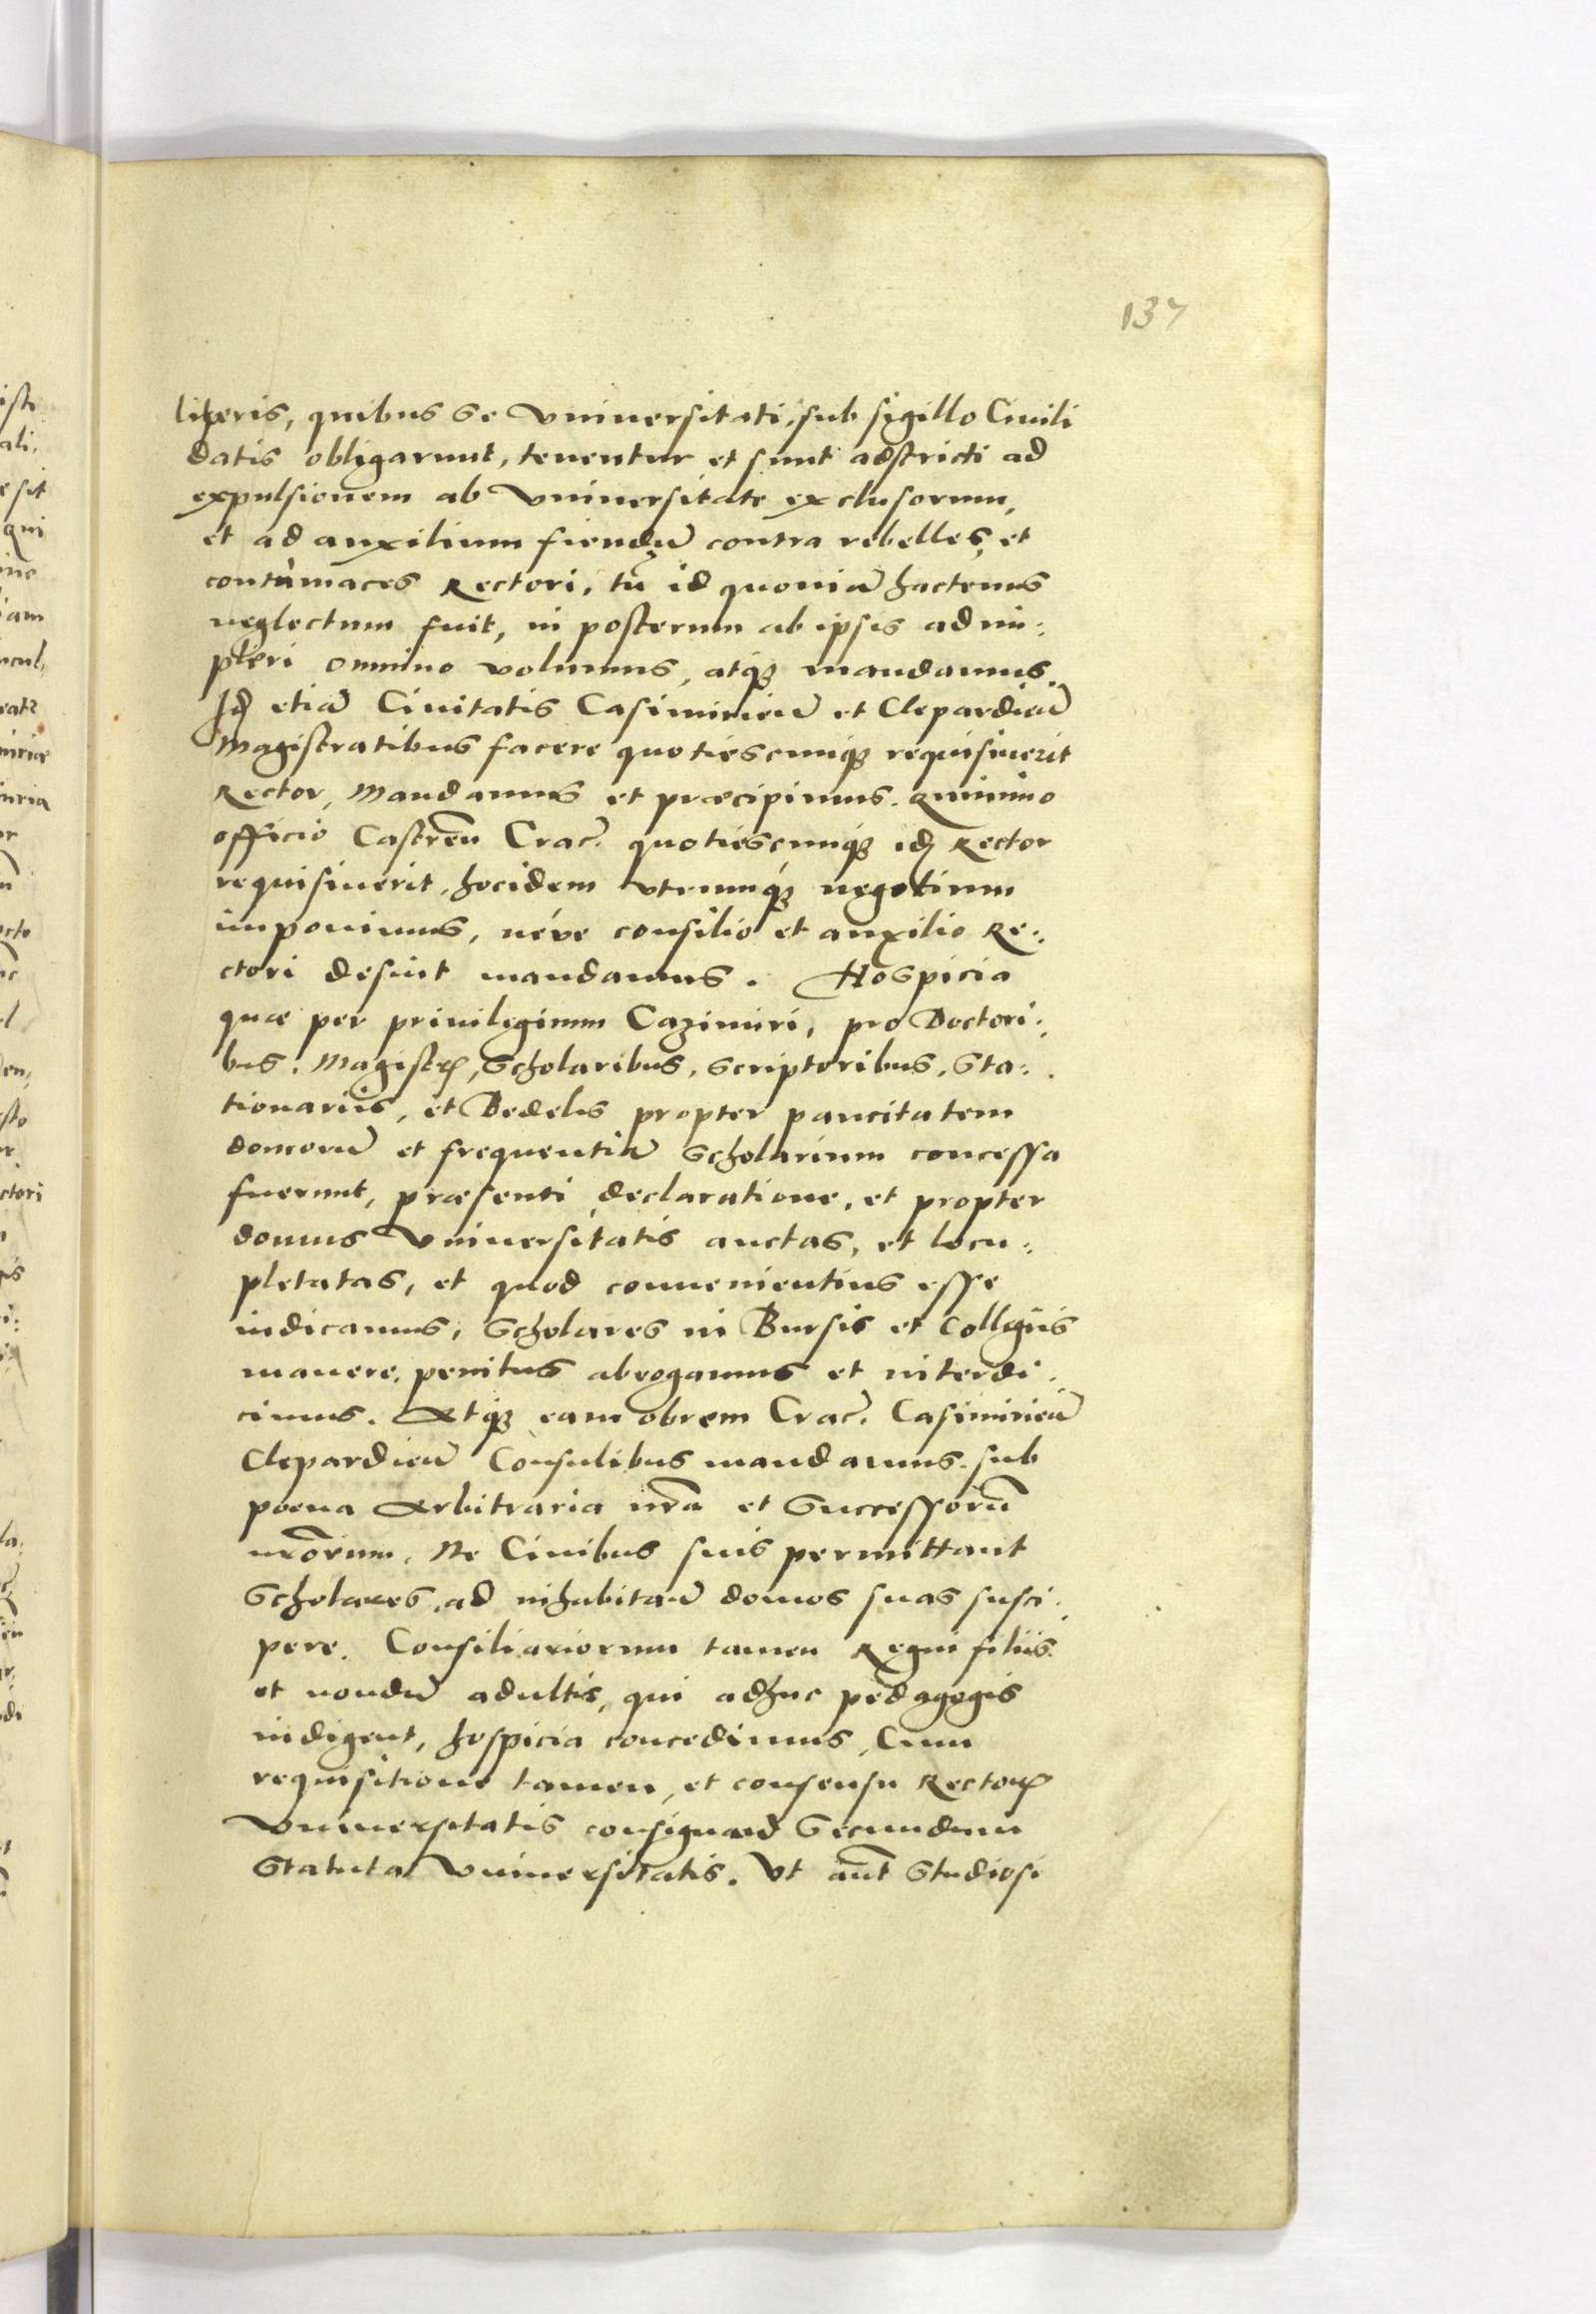 137
literis, quibus se Vniuersitati, sub sigillo Ciuili
datis obligarunt, tenentur et sunt adstricti ad
expulsionem ab Vniuersitate exclusorum,
et ad auxilium fiendũ contra rebelles, et
contumaces Rectori, tñ id quoniã hactenus
neglectum fuit, in posterum ab ipsis adim:
pleri omnino volumus, atqꝫ mandamus.
Id etiã Ciuitatis Casimirieñ et Clepardieñ
Magistratibus facere quotiescunqꝫ requisiuerit
Rector, Mandamus et præcipimus. Quinimo
officio Castreñ Crac̃. quotiescunqꝫ id Rector
requisiuerit, hocidem vtrumqꝫ negotium
imponimus, néve consilio et auxilio Re:
ctori desint mandamus. Hospicia
quæ per priuilegium Cazimiri, pro Doctori:
bus. Magistrꝭ, Scholaribus, Scriptoribus, Sta:
tionariis, et Bedelis propter paucitatem
domorũ et frequentiã Scholarium concessa
fuerunt, præsenti declaratione, et propter
domus Vniuersitatis auctas, et locu:
pletatas, et quod conuenientius esse
iudicamus, Scholares in Bursis et Collegiis
manere, penitus abrogamus et interdi:
cimus. Atqꝫ eam obrem Crac̃. Casimirieñ
Clepardieñ Consulibus mandamus. sub
poena Arbitraria nr̃a et Successorũ
nr̃orum. Ne Ciuibus suis permittant
Scholares, ad inhabitañ domos suas susci:
pere. Consiliariorum tamen Regni filiis
et nondũ adultis, qui adhuc pedagogis
indigent, hospicia concedimus, Cum
requisitione tamen, et consensu Rectorꝭ
Vniuersitatis consignañd Secundum
Statuta Vniuersitatis. Vt aũt Studiosi